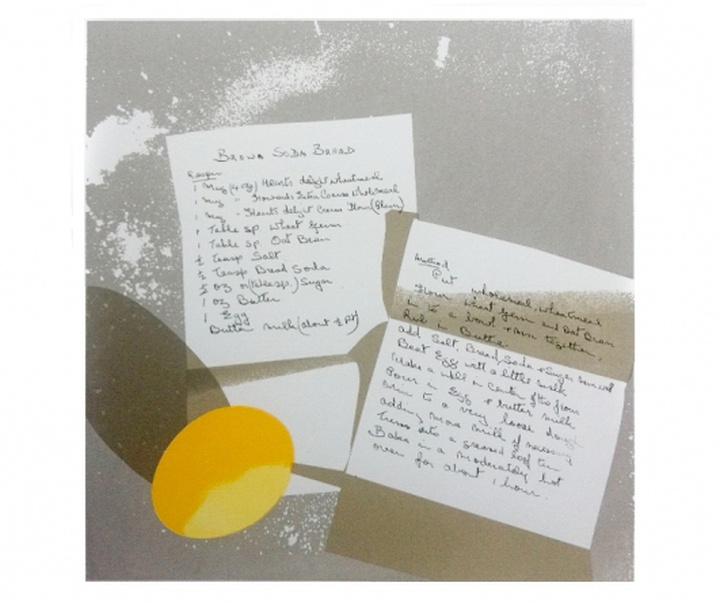 BROWN SODA BREAD
Recipe
1 Mug (4 oz) Heart's delight wheatmeal
1 Mug " Howards Extra Coarse Wholemeal
1 Mug " Heart's delight Cream Flour (Plain)
1 Table sp. Wheat Germ
1 Table sp. Oat Bran
½ Teasp Salt
½ Teasp Bread Soda
½ oz or (Table sp.) Sugar
1 oz Butter
1 Egg
Butter milk (about ½ Pt)
Method
Put wholemeal, wheatmeal
Flour, Wheat Germ and Oat Bran
in to a bowl + mix together,
Rub in Butter
add Salt, Bread Soda + Sugar
Beat Egg with a little milk
Make a well in center of the flour
Pour in Egg + butter milk
mix to a very loose dough
adding more milk if necessary
Turn into a greased loaf tin
Bake in a moderately hot
oven for about 1 hour.